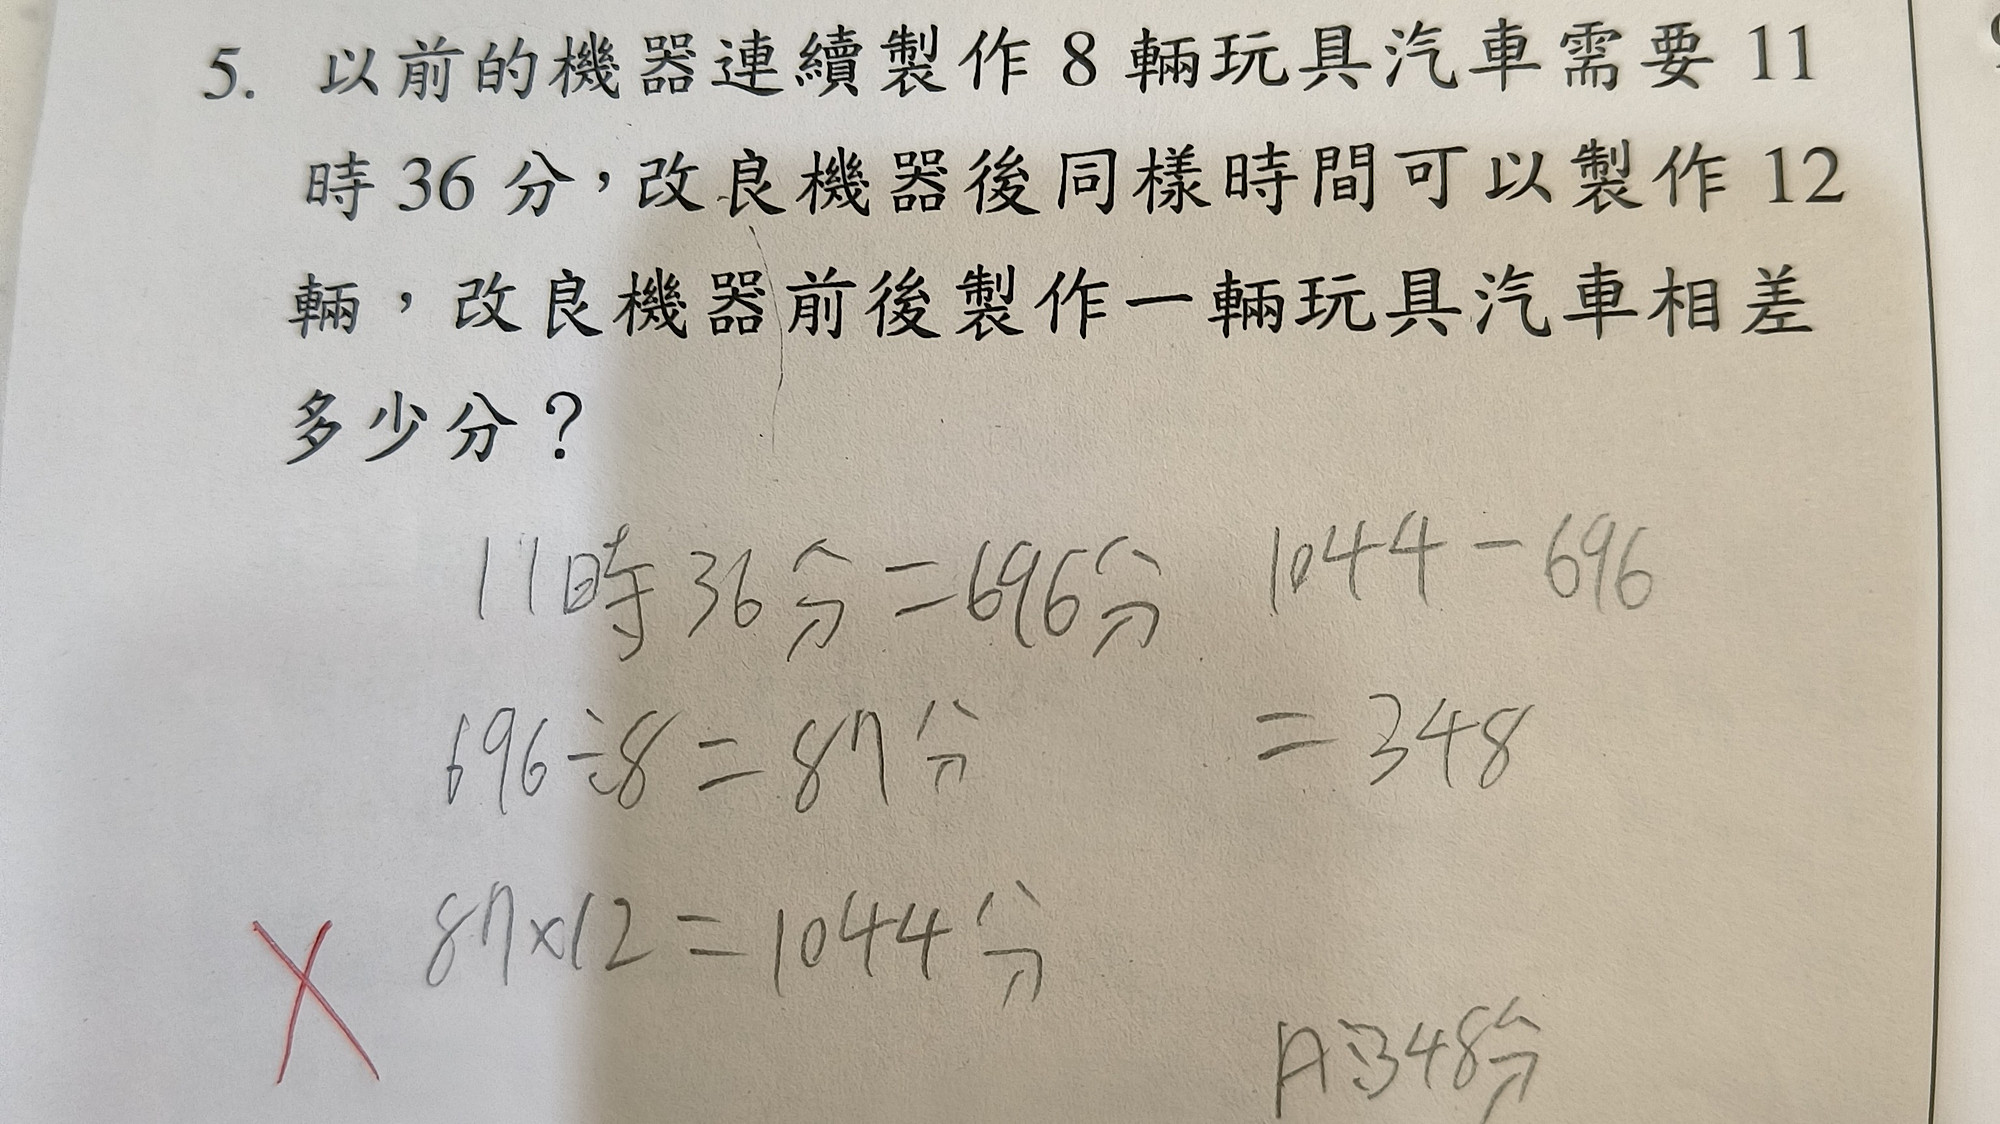 5. 以前的機器連續製作 8 輛玩具汽車需要 11
時 36 分，改良機器後同樣時間可以製作 12
輛，改良機器前後製作一輛玩具汽車相差
多少分？
11時36分=696分
696÷8=87分
87×12=1044分
1044-696
=348
A:348分